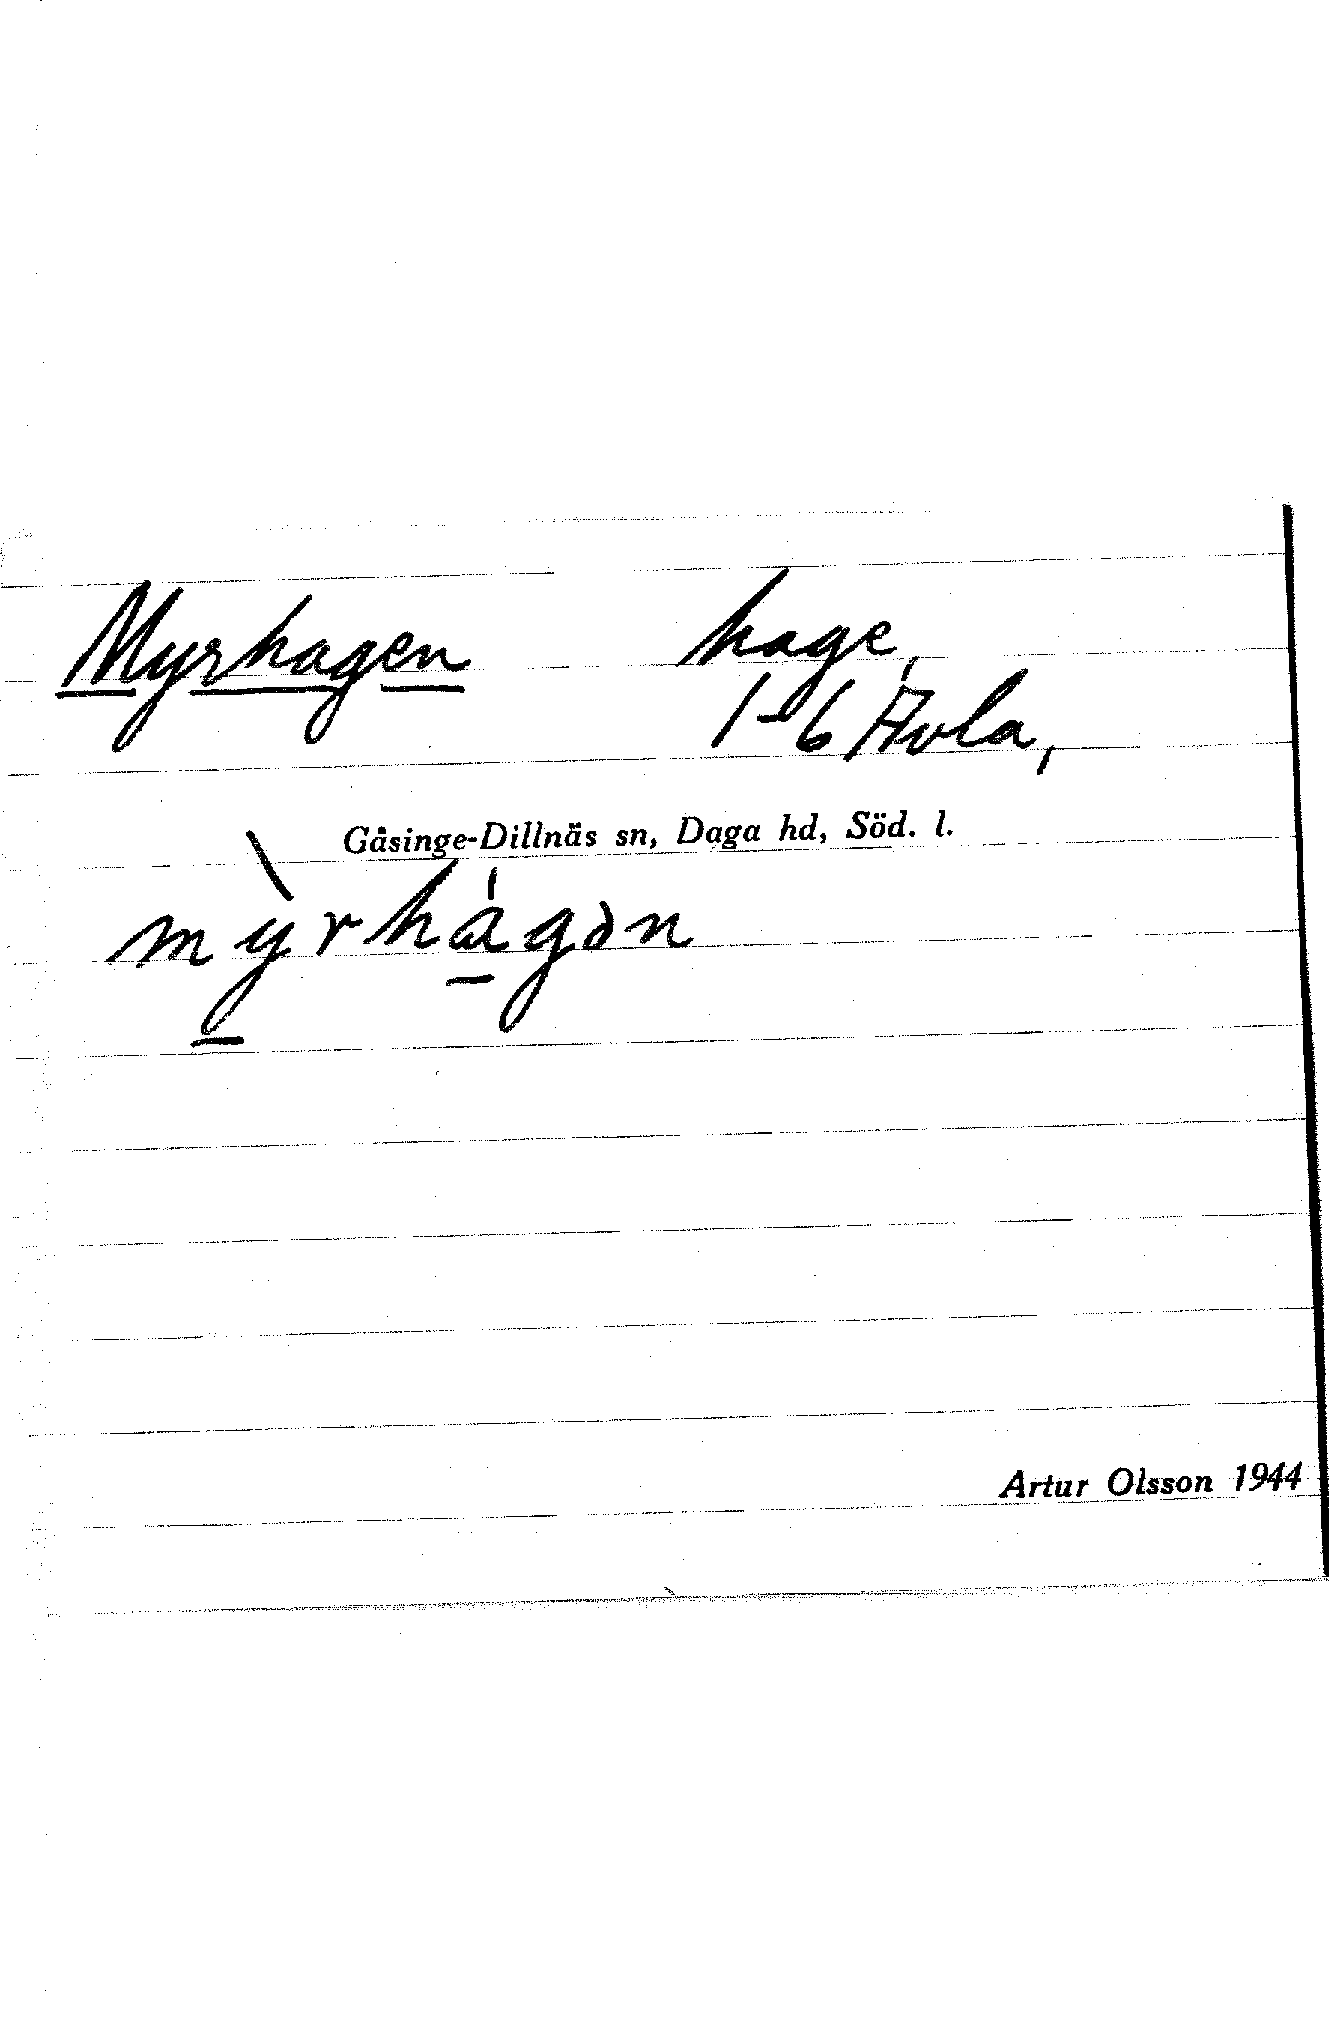 Myrhagen hage,
1-6 Avla,
Gåsinge-Dillnäs sn, Daga hd, Söd. l.
mỳrhágən
Artur Olsson 1944